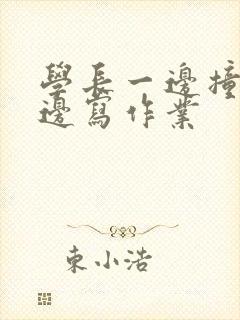 學長一邊撞
邊寫作業
東小浩